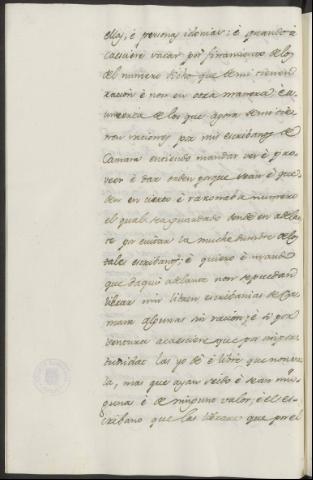 ellos, é personas idoneas: é quando á
caesciere vacar por finamiento de los
del numero dicho que de mi tienen
racion é non en otra manera é su
de los que agora de mi tie
nen raciones por mis escribanos de
Camara entiendo mandar ver é pro
veer é dar orden porque sean é que
den en cierto é razonado numero
el qual sea guardado dende en adelan
te por evitar la muchedumbre de los
tales escribanos; é quiero é mando
que daqui adelante non se puedan
librar nin libren escribanias de Ca
mara algunas sin racion; é si por
ventura acaesciere que por impor
tunidat las yo dé é libre que non va
la, mas que ayan seido é sean nin
guna é de ninguno valor; é el es
cribano que las librare que por el